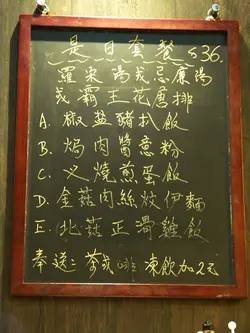 是日套餐 $36.
羅宋湯或忌廉湯
或霸王花煲排
A. 椒盐豬扒飯
B. 焗肉醬意粉
C. 义燒煎蛋飯
D. 金菇肉絲炆伊麵
E. 北菇正滑雞飯
奉送：茶或啡 凍飲加2元